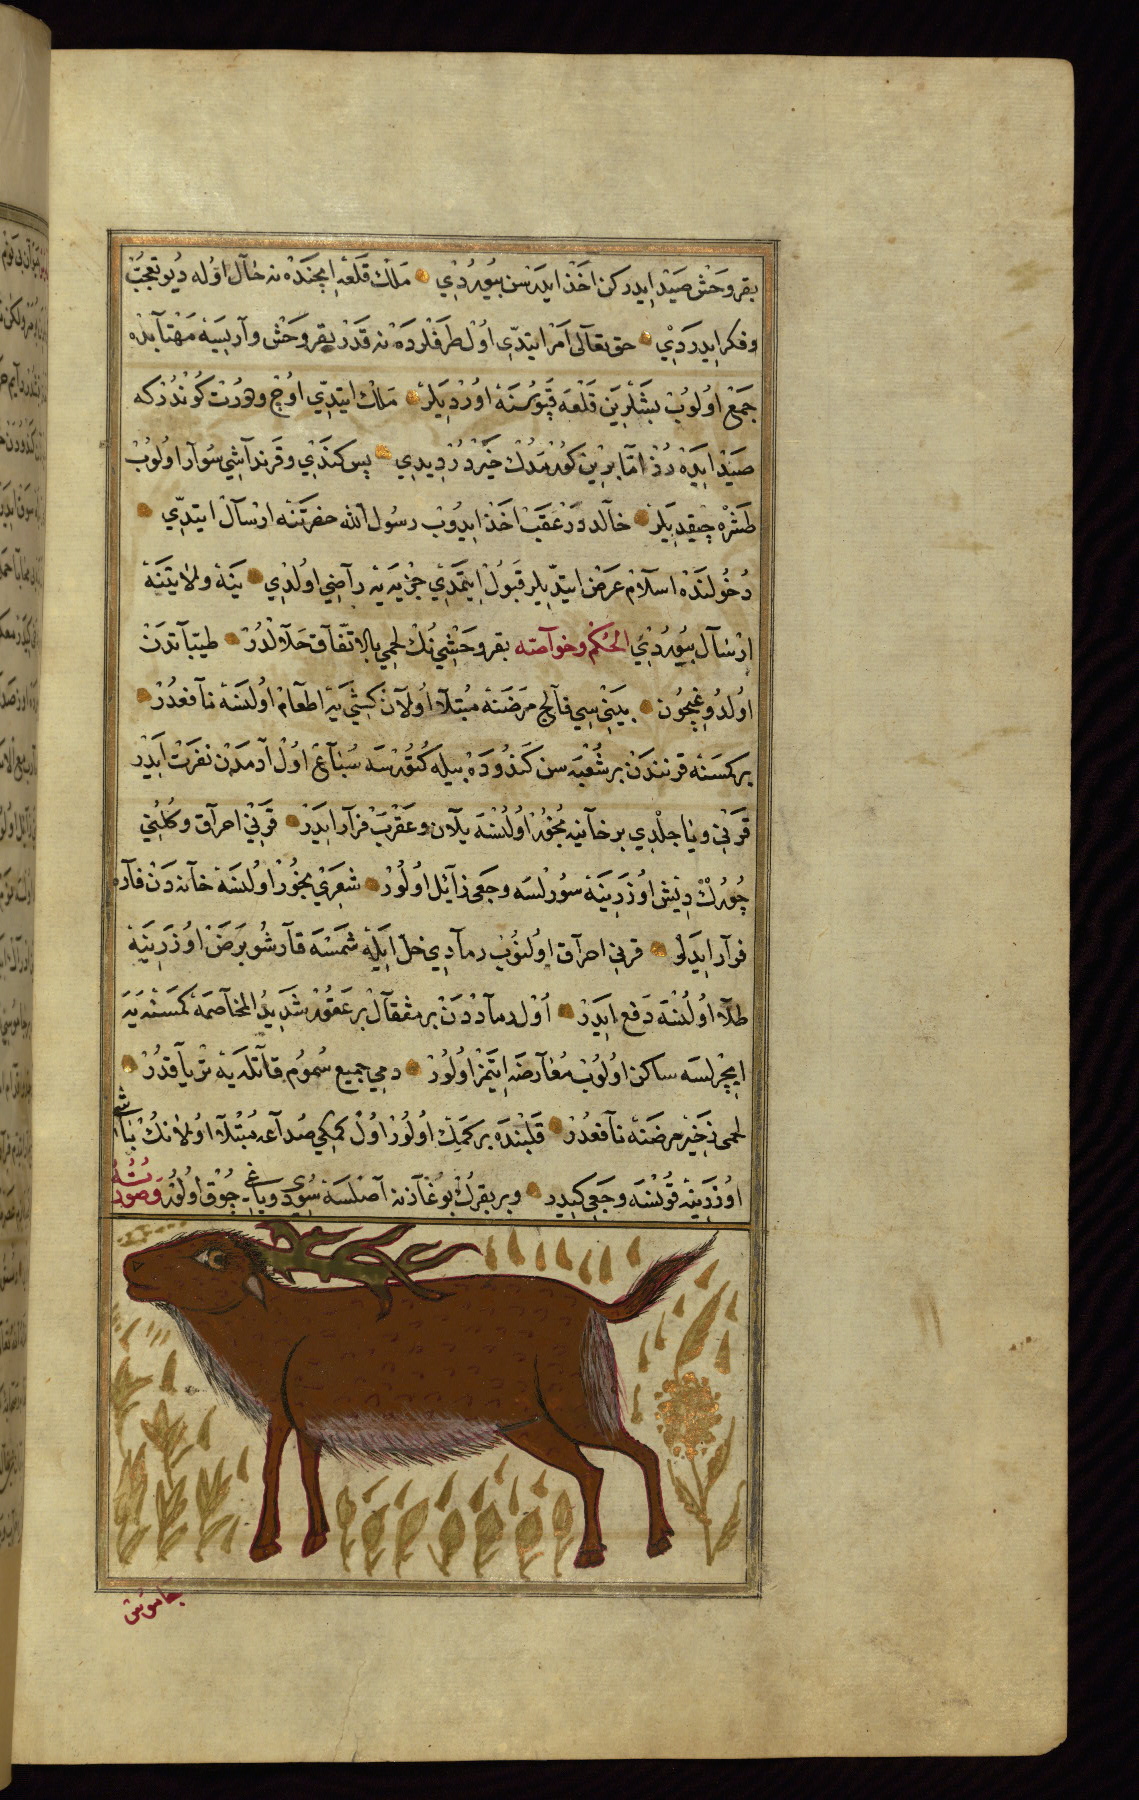 بقر وحش صيد ايدركن اخذ ايدرسن بيوردي ملك قلعه ايچنده نه حال اوله ديو تعجب
وفكر ايدردي حق تعالى امر ايتدي اول طرفلرده نه قدر بقر وحش وار ايسه مهتابده
جمع اولوب بشلرين قلعه قپوسنه اوردیلر ملك ايتدي اوج ودرت كوندر كه
صيد ايده رز اما برين كورمدك خيردر ديدي پس كندي وقرنداشي سوار اولوب
طشره چيقديلر خالد در عقب اخذ ايدوب رسول الله حضرتنه ارسال ايتدي
دخولنده اسلام عرض ايتديلر قبول ايتمدي جزيه يه راضي اولدي ينه ولايتنه
ارسال بيوردي الحكم وخواصه بقر وحشي نك لحمي بالاتفاق حلالدر طيباتدن
اولدوغيچون بيني سي فالج مرضنه مبتلا اولان كشي يه اطعام اولنسه نافعدر
بر كمسنه قرنندن بر شعبه سن كندوده بيله كتورسه سباع اول آدمدن نفرت ايدر
قرني ويا جلدي بر خانه ده بخور اولنسه يلان وعقرب فرار ايدر قرني احراق وكلني
چورك ديش اوزرينه سورلسه وجعي زائل اولور شعري بخور اولنسه خانه دن فاره
فرار ايدر قرني احراق اولنوب رمادي خل ايله شمسه قارشو برص اوزرينه
طلا اولنسه دفع ايدر اول رماددن بر مثقال بر عقور شديد المخاصمه كمسنه يه
ايچرلسه ساكن اولوب معارضه ايتمز اولور دمي جميع سموم قاتله يه ترياقدر
لحمي زحير مرضنه نافعدر قلبنده بر كمك اولور اول كمكي صداعه مبتلا اولانك باشي
اوزرينه قونسه وجعي كيدر وبر بقرك بوغازنه آصلسه سودي وياغي چوق اولور وصورته
جاموش